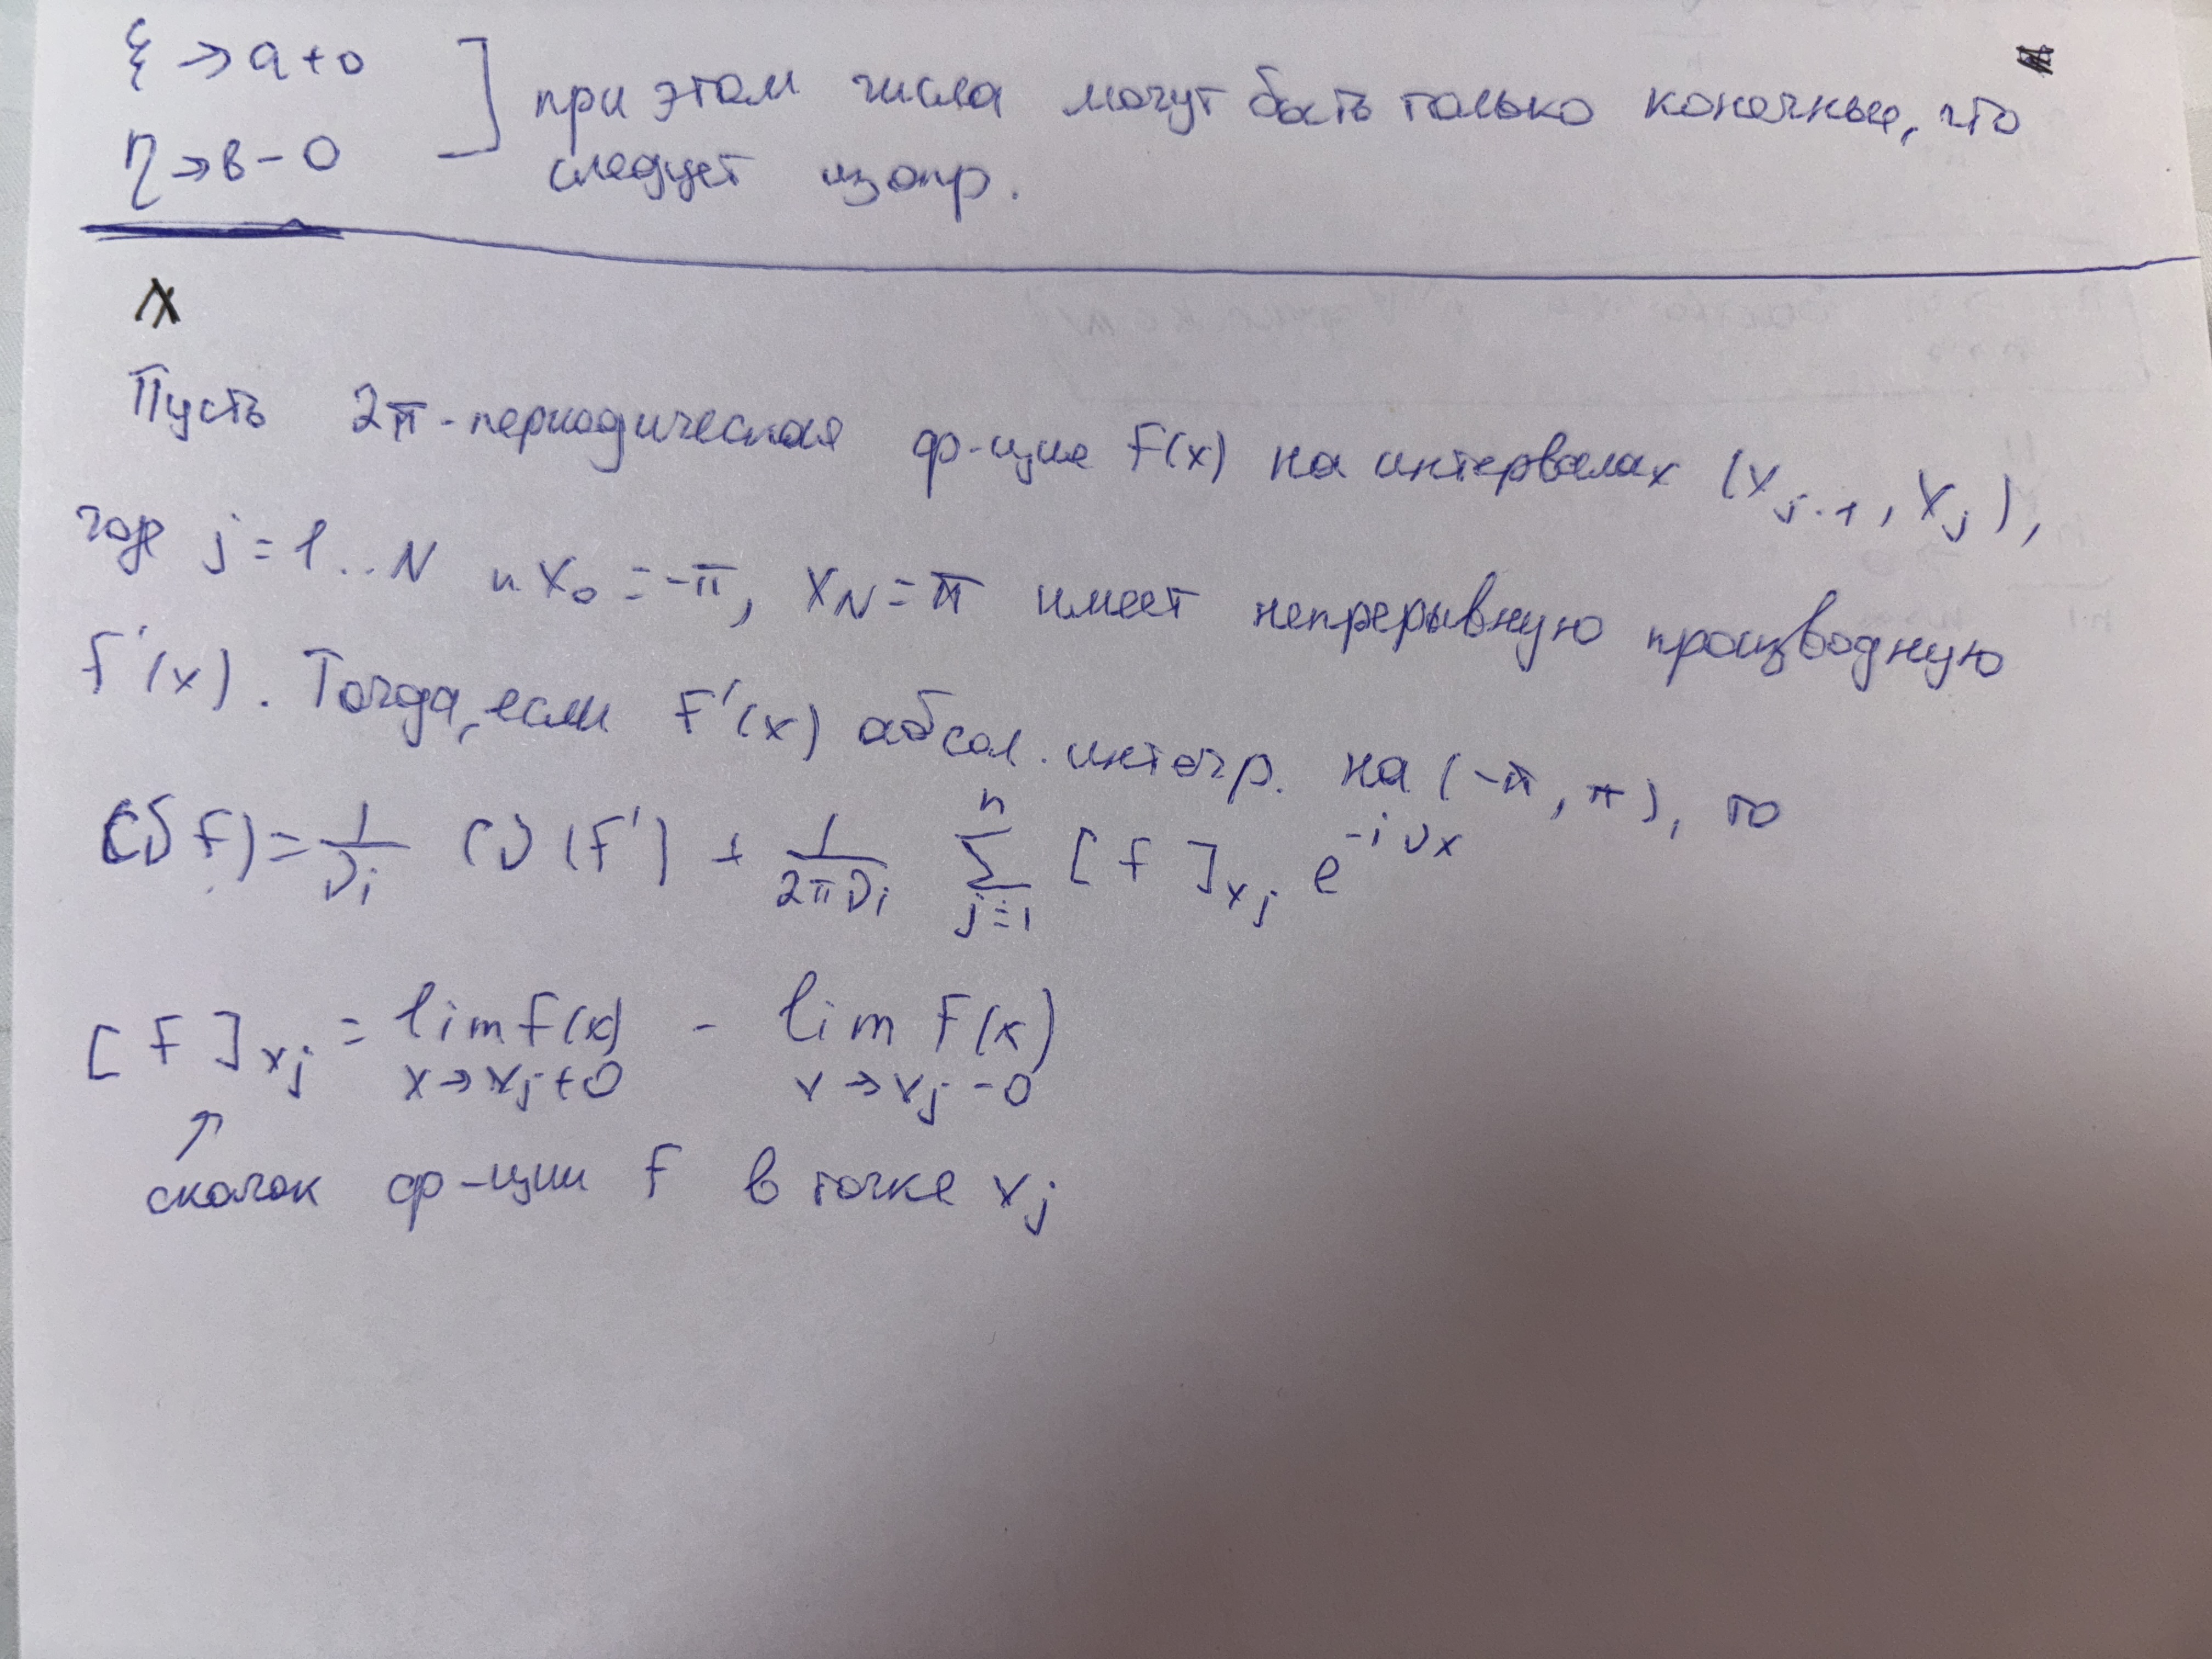 ξ → a+0
η → в-0 ] при этом числа могут быть только конечные, что
следует из опр.
Пусть 2π-периодическая ф-ция f(x) на интервалах (x_{j-1}, x_j),
где j=1..N и x_0 = -π, x_N = π имеет непрерывную производную
f'(x). Тогда, если f'(x) абсол. интегр. на (-π, π), то
Cν(f) = 1/νi Cν(f') + 1/2πνi ∑_{j=1}^{n} [f]_{xj} e^{-iνx}
[f]_{xj} = lim_{x→xj+0} f(x) - lim_{x→xj-0} f(x)
↑
скачок ф-ции f в точке xj